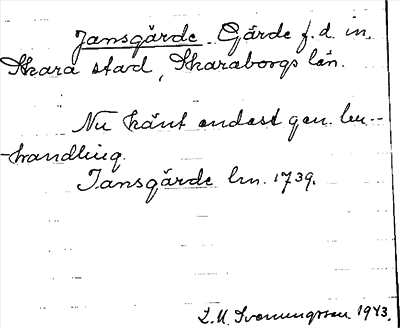 Jansgärde. Gärde f.d. in.
Skara stad, Skaraborgs län.
Nu känt endast gen. lm-
-handling.
Jansgärde lm. 1739.
1943.